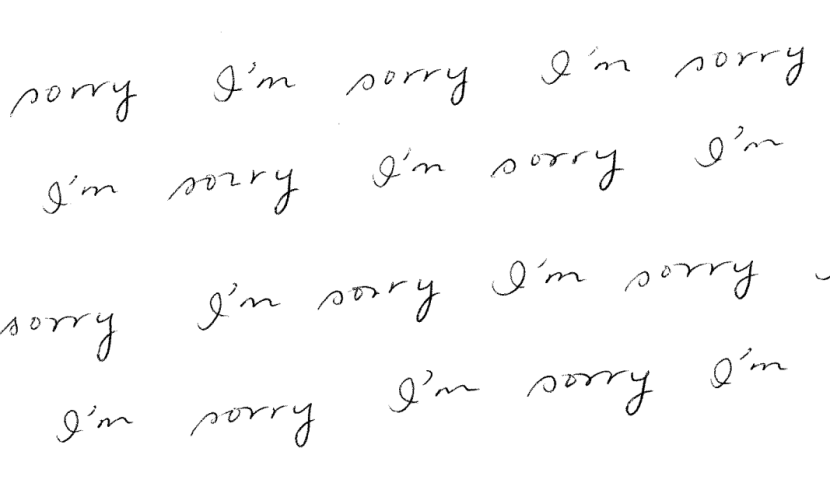 sorry I'm sorry I'm sorry
I'm sorry I'm sorry I'm
sorry I'm sorry I'm sorry
I'm sorry I'm sorry I'm